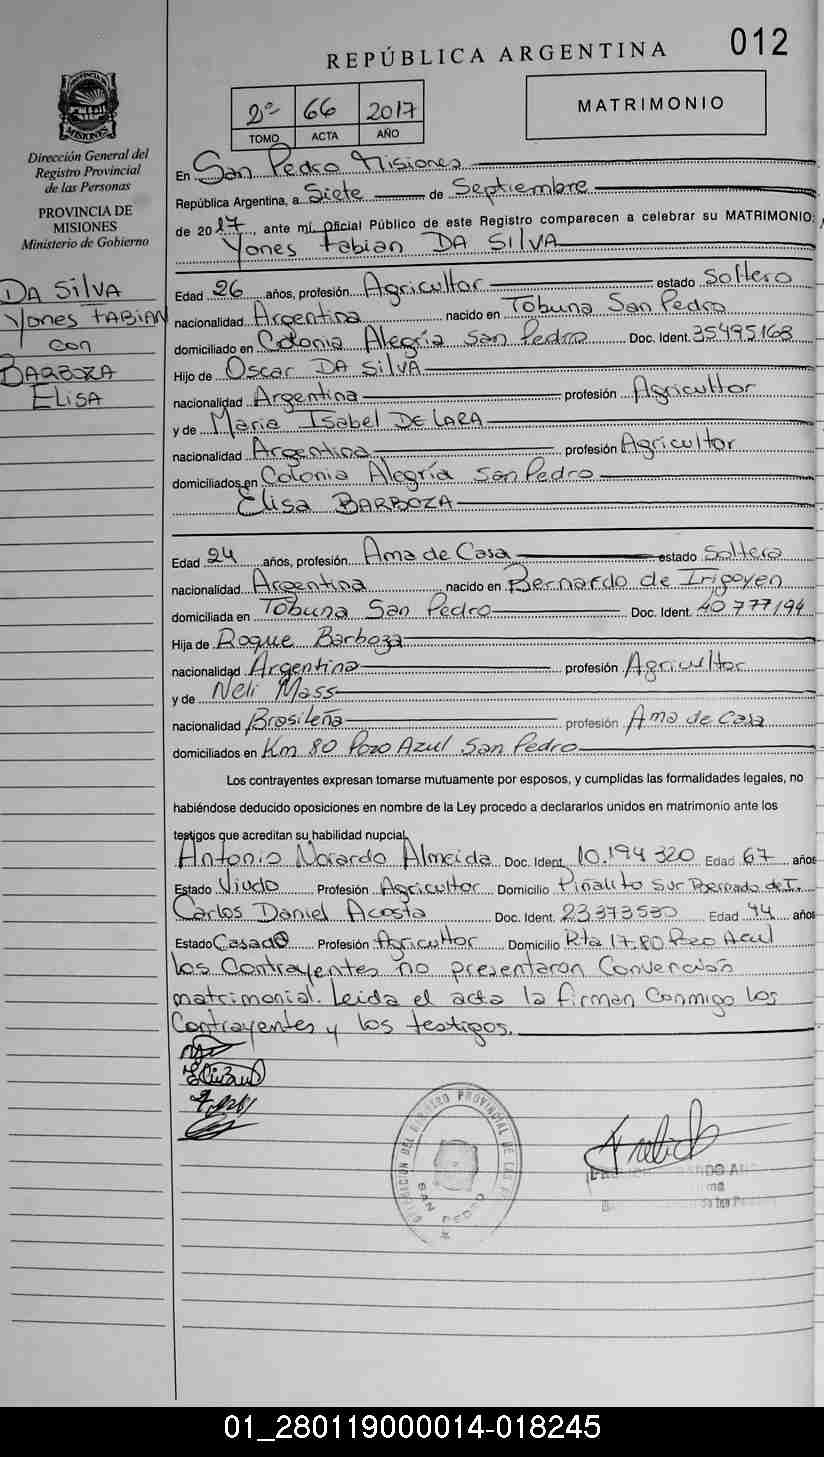 012
REPÚBLICA ARGENTINA
2º 66 2017
TOMO ACTA AÑO
MATRIMONIO
PROVINCIA
MISIONES
Dirección General del
Registro Provincial
de las Personas
PROVINCIA DE
MISIONES
Ministerio de Gobierno
DA SILVA
Yones FABIAN
con
BARBOZA
ELISA
En San Pedro Misiones
República Argentina, a Siete de Septiembre
de 2017, ante mí, Oficial Público de este Registro comparecen a celebrar su MATRIMONIO:
Yones Fabian DA SILVA
Edad 26 años, profesión Agricultor estado Soltero
nacionalidad Argentina nacido en Tobuna San Pedro
domiciliado en Colonia Alegría San Pedro Doc. Ident. 35495168
Hijo de Oscar DA SILVA
nacionalidad Argentina profesión Agricultor
y de Maria Isabel DE LARA
nacionalidad Argentina profesión Agricultor
domiciliados en Colonia Alegría San Pedro
Elisa BARBOZA
Edad 24 años, profesión Ama de Casa estado Soltera
nacionalidad Argentina nacido en Bernardo de Irigoyen
domiciliada en Tobuna San Pedro Doc. Ident. 40777194
Hija de Roque Barboza
nacionalidad Argentina profesión Agricultor
y de Neli Mass
nacionalidad Brasileña profesión Ama de Casa
domiciliados en Km 80 Pozo Azul San Pedro
Los contrayentes expresan tomarse mutuamente por esposos, y cumplidas las formalidades legales, no
habiéndose deducido oposiciones en nombre de la Ley procedo a declararlos unidos en matrimonio ante los
testigos que acreditan su habilidad nupcial,
Antonio Norardo Almeida Doc. Ident. 10.194 320 Edad 67 años
Estado Viudo Profesión Agricultor Domicilio Piñalito Sur Bernado de I.
Carlos Daniel Acosta Doc. Ident. 23373530 Edad 44 años
Estado Casado Profesión Agricultor Domicilio Rta 17.80 Pozo Azul
los Contrayentes no presentaron Convención
matrimonial. Leida el acta la firman Conmigo los
Contrayentes y los testigos.
REGISTRO PROVINCIAL DE LAS
SAN PEDRO
01_280119000014-018245